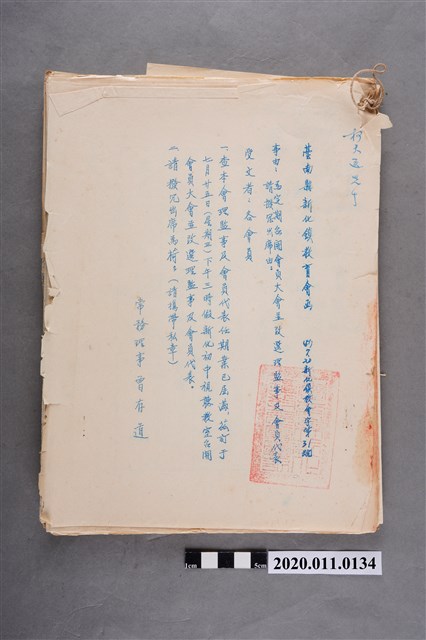 臺南縣新化鎮教育會函
事由：為定期召開會員大會並改選理監事及會員代表
請撥冗出席由。
受文者：各會員
一查本會理監事及會員代表任期業已屆滿，茲訂于
七月廿五日(星期三)下午三時假新化初中視聽教室召開
會員大會並改選理監事及會員代表。
二請撥冗出席為荷。(請攜帶私章)
常務理事 曾存道
1cm
5cm
2020.011.0134